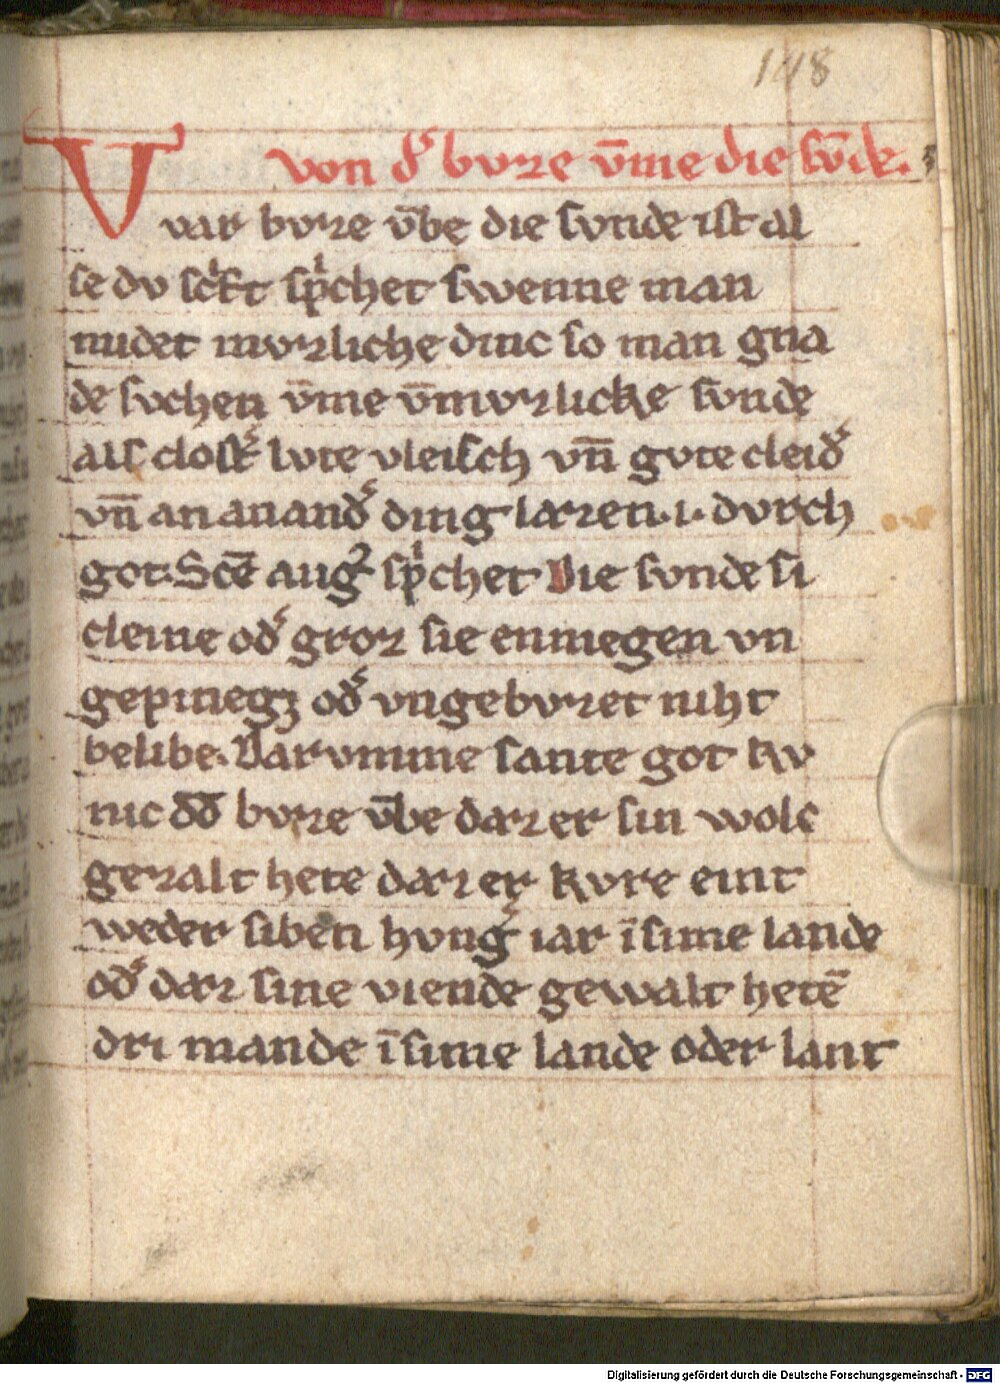 148
von d͛ bvze v̄me die sv̄de.
V var bvze v̄be die sunde ist al
se dv scⁱft spⁱchet swenne man
midet mvzliche dinc so man gna
de svchen v̄me v̄mvzlicke sunde
als closť lvte vleisch vn̄ gvte cleid͛
vn̄ an anand͛ ding lazen .i. dvrch
got. Scē aug᷑ spⁱchet Die svnde si
cleine od͛ groz sie enmegen vn
gepinegꝫ od͛ vngebvzet niht
belibe. Darvmme sante got kv
nic dd̄ bvze v̄be daz er sin wolc
gezalt hete daz er kvre eint
weder siben hvng͛ iar ī sime lande
od͛ daz sine viende gewalt hetē
dri mande ī sime lande oder lant
Digitalisierung gefördert durch die Deutsche Forschungsgemeinschaft - DFG